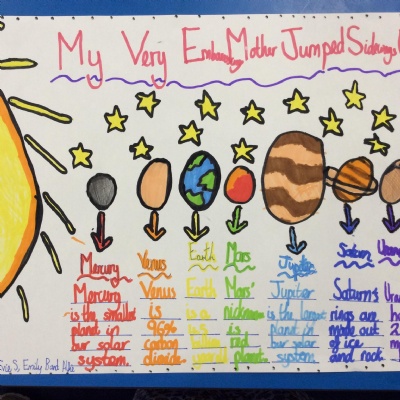 My Very Mother Jumped Sideways
Mercury
Mercury
is the smallest
planet in
our solar
system.
Venus
Venus
is
96%
carbon
dioxide.
Earth
Earth
billion
Mars
Mars'
nickname
is
red
planet.
Jupiter
Jupiter
is the largest
planet in
our solar
system.
Saturn
Saturn's
rings are
made out
of ice
and rock.
Evie S, Emily B and Alfie